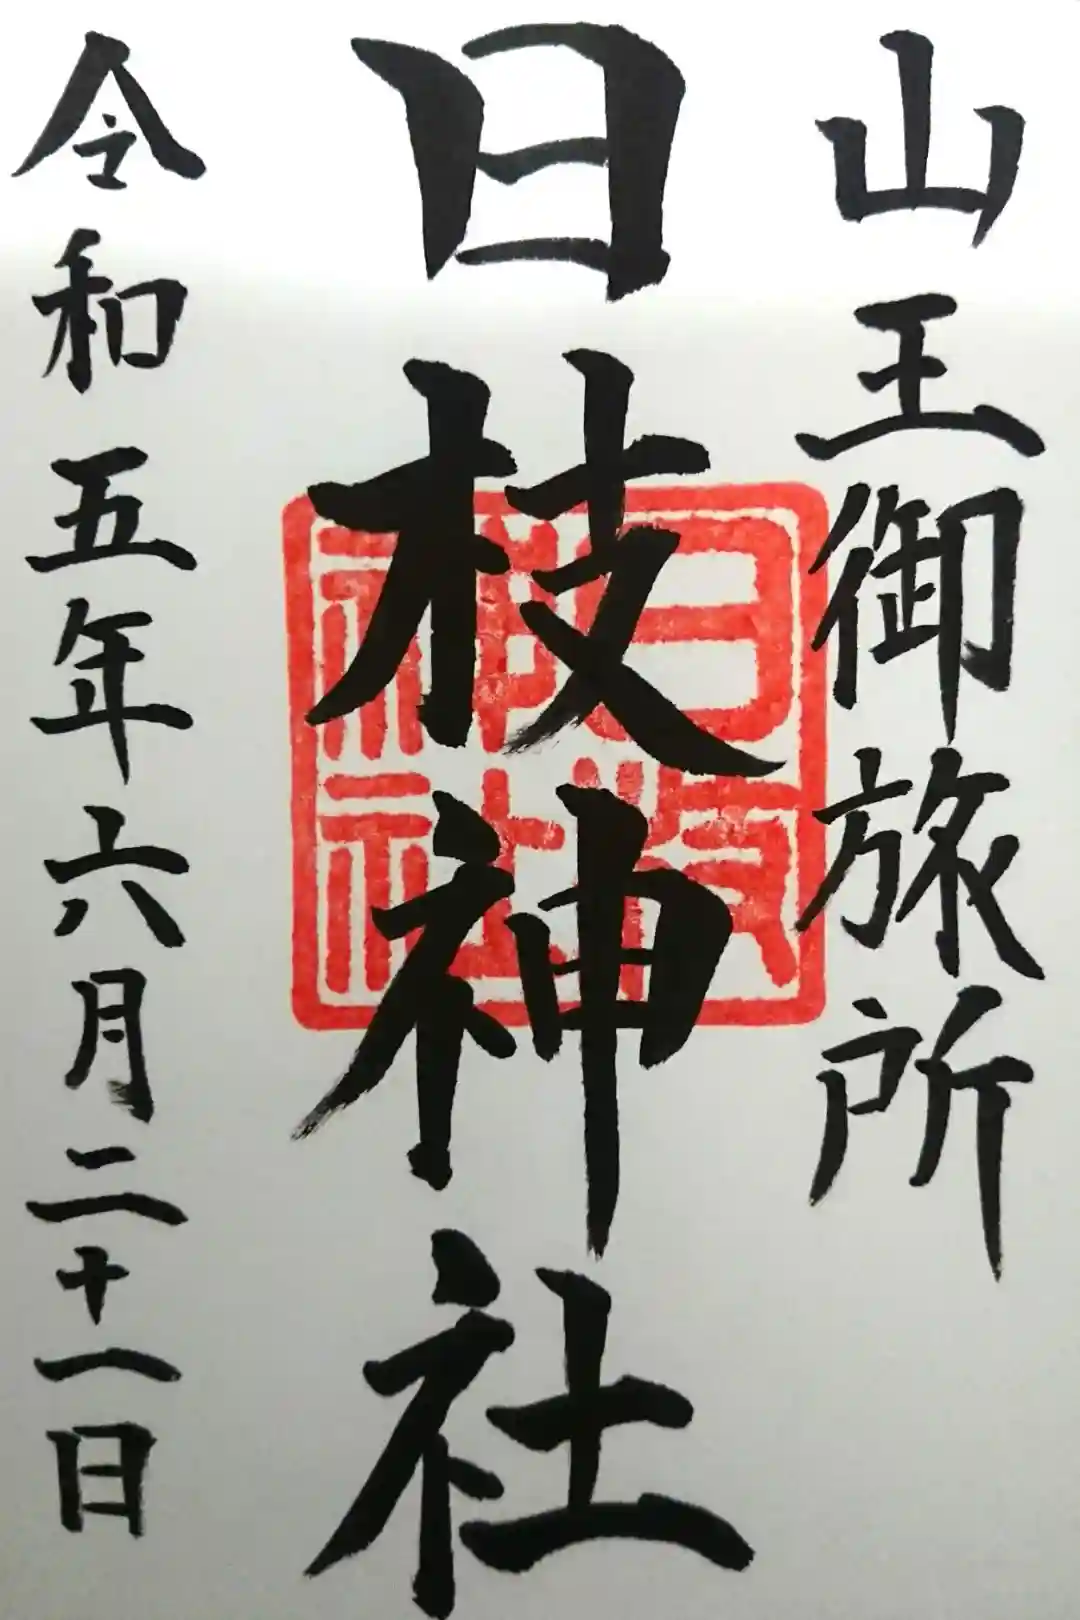 山王御旅所
日枝神社
日枝
神社
令和五年六月二十一日